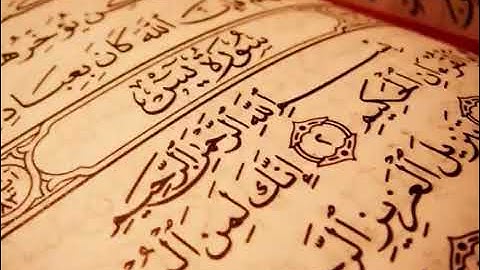 كِن يُؤَخِّرُهُ
ٱللَّهَ كَانَ بِعِبَادِ
سُورَةُ يسٓ
بِسْمِ ٱللَّهِ ٱلرَّحْمَٰنِ ٱلرَّحِيمِ
ءَانِ ٱلْحَكِيمِ ٢ إِنَّكَ لَمِنَ ٱلْمُ
تَنزِيلَ ٱلْعَزِيزِ ٱلرَّ